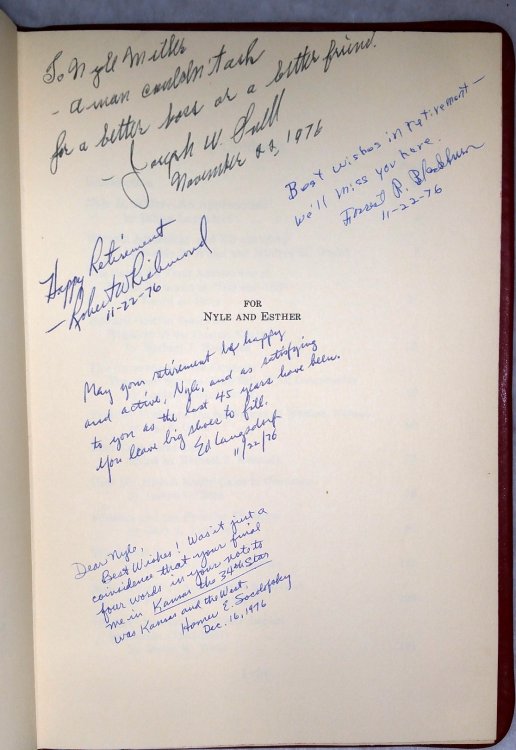 To Nyle Miller
- a man couldn't ask
for a better boss or a better friend.
- Joseph W. Snell
November 22, 1976
Best wishes in retirement -
We'll miss you here.
Forrest R. Blackburn
11-22-76
Happy Retirement
- Robert W Richmond
11-22-76
FOR
NYLE AND ESTHER
May your retirement be happy
and active, Nyle, and as satisfying
to you as the last 45 years have been.
You leave big shoes to fill.
Ed Langsdorf
11/22/76
Dear Nyle,
Best Wishes! Was it just a
coincidence that your final
four words in your note to
me in Kansas the 34th Star
was Kansas and the West.
Homer E. Socolofsky
Dec. 16, 1976